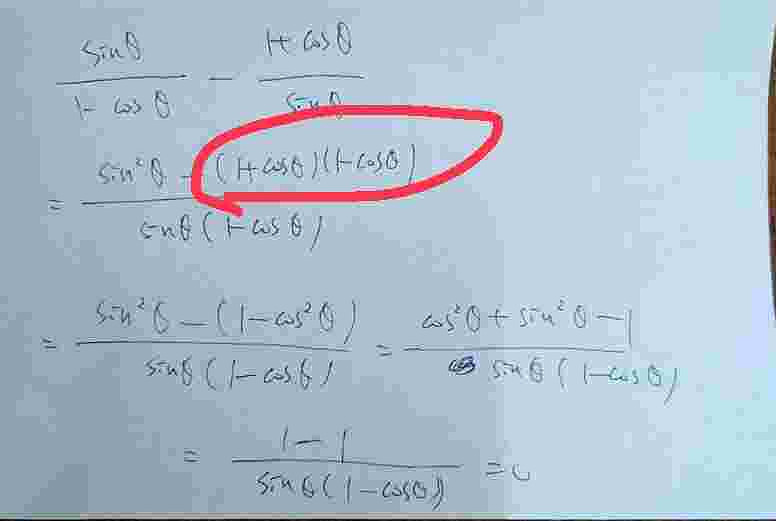 sinθ/(1-cosθ) - (1+cosθ)/sinθ
= (sin²θ - (1+cosθ)(1-cosθ))/(sinθ(1-cosθ))
= (sin²θ - (1-cos²θ))/(sinθ(1-cosθ)) = (cos²θ + sin²θ - 1)/(sinθ(1-cosθ))
= (1-1)/(sinθ(1-cosθ)) = 0